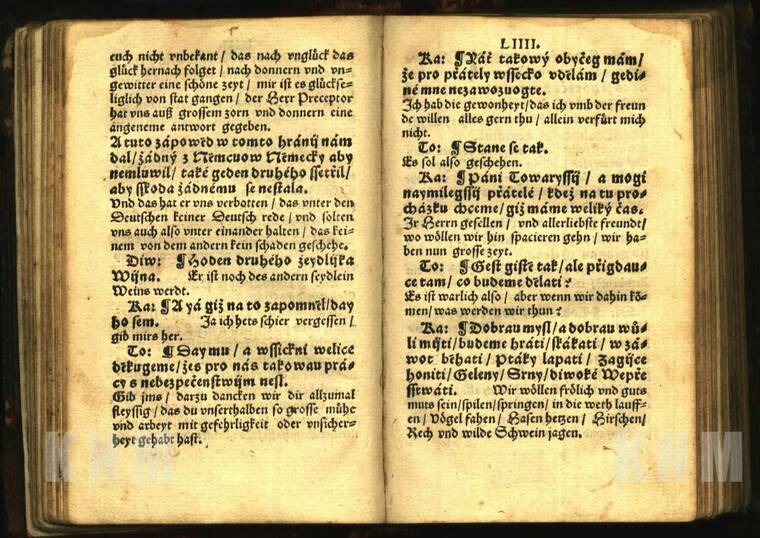 euch nicht vnbekant / das nach vnglück das
glück hernach folget / nach donnern vnd vn-
gewitter eine schöne zeyt / mir ist es glückse-
liglich von stat gangen / der Herr Preceptor
hat vns auß grossem zorn vnd donnern eine
angeneme antwort gegeben.
A tuto zápowěd w tomto hránij nám
dal / žádný z Němcuow Německy aby
nemluwil / také geden druhého ssetřil /
aby sskoda žádnému se nestala.
Vnd das hat er vns verbotten / das vnter den
Deutschen keiner Deutsch rede / vnd solten
vns auch also vnter einander halten / das kei-
nem von dem andern kein schaden geschehe.
Diw: ¶ Hoden druhého žeydlijka
Wijna. Er ist noch des andern seydlein
Weins werdt.
Ka: ¶ A yá giž na to zapomněl / day
ho sem. Ja ich hets schier vergessen /
gib mirs her.
To: ¶ Day mu / a wssickni welice
děkugeme / žes pro nás takowau prá-
cy s nebezpečenstwijm nesl.
Gib jms / darzu dancken wir dir allzumal
fleyssig / das du vnserthalben so grosse mühe
vnd arbeyt mit gefehrligkeit oder vnsicher-
heyt gehabt hast.
LIIII.
Ka: ¶ Náč takowý obyčeg mám /
že pro přátely wssecko vdělám / gedi-
né mne nezawozuogte.
Ich hab die gewonheyt / das ich vmb der freun
de willen alles gern thu / allein verfürt mich
nicht.
To: ¶ Stane se tak.
Es sol also geschehen.
Ka: ¶ Páni Towaryssij / a mogi
naymilegssij přátelé / kdež na tu pro-
cházku chceme / giž máme weliký čas.
Jr Herrn gesellen / vnd allerliebste freundt /
wo wöllen wir hin spacieren gehn / wir ha-
ben nun grosse zeyt.
To: ¶ Gest gistě tak / ale přigdau-
ce tam / co budeme dělati?
Es ist warlich also / aber wenn wir dahin kõ-
men / was werden wir thun?
Ka: ¶ Dobrau mysl / a dobrau wů-
li mijti / budeme hráti / skákati / w zá-
wot běhati / Ptáky lapati / Zagijce
honiti / Geleny / Srny / diwoké Wepře
sstwáti. Wir wöllen frölich vnd guts
muts sein / spilen / springen / in die weth lauff-
en / Vögel fahen / Hasen hetzen / Hirschen /
Rech vnd wilde Schwein jagen.
KNM
KNM